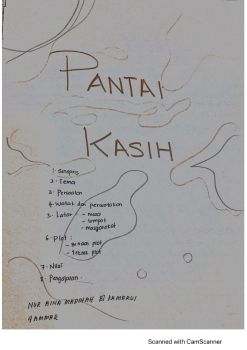 PANTAI
KASIH
1. Sinopsis
2. Tema
3. Persoalan
4. Watak dan perwatakan
5. Latar - masa
- tempat
- masyarakat
6. Plot :
- Binaan plot
- Teknik plot
7. Nilai
8. Pengajaran
NUR AINA
4 AMMAR
Scanned with CamScanner